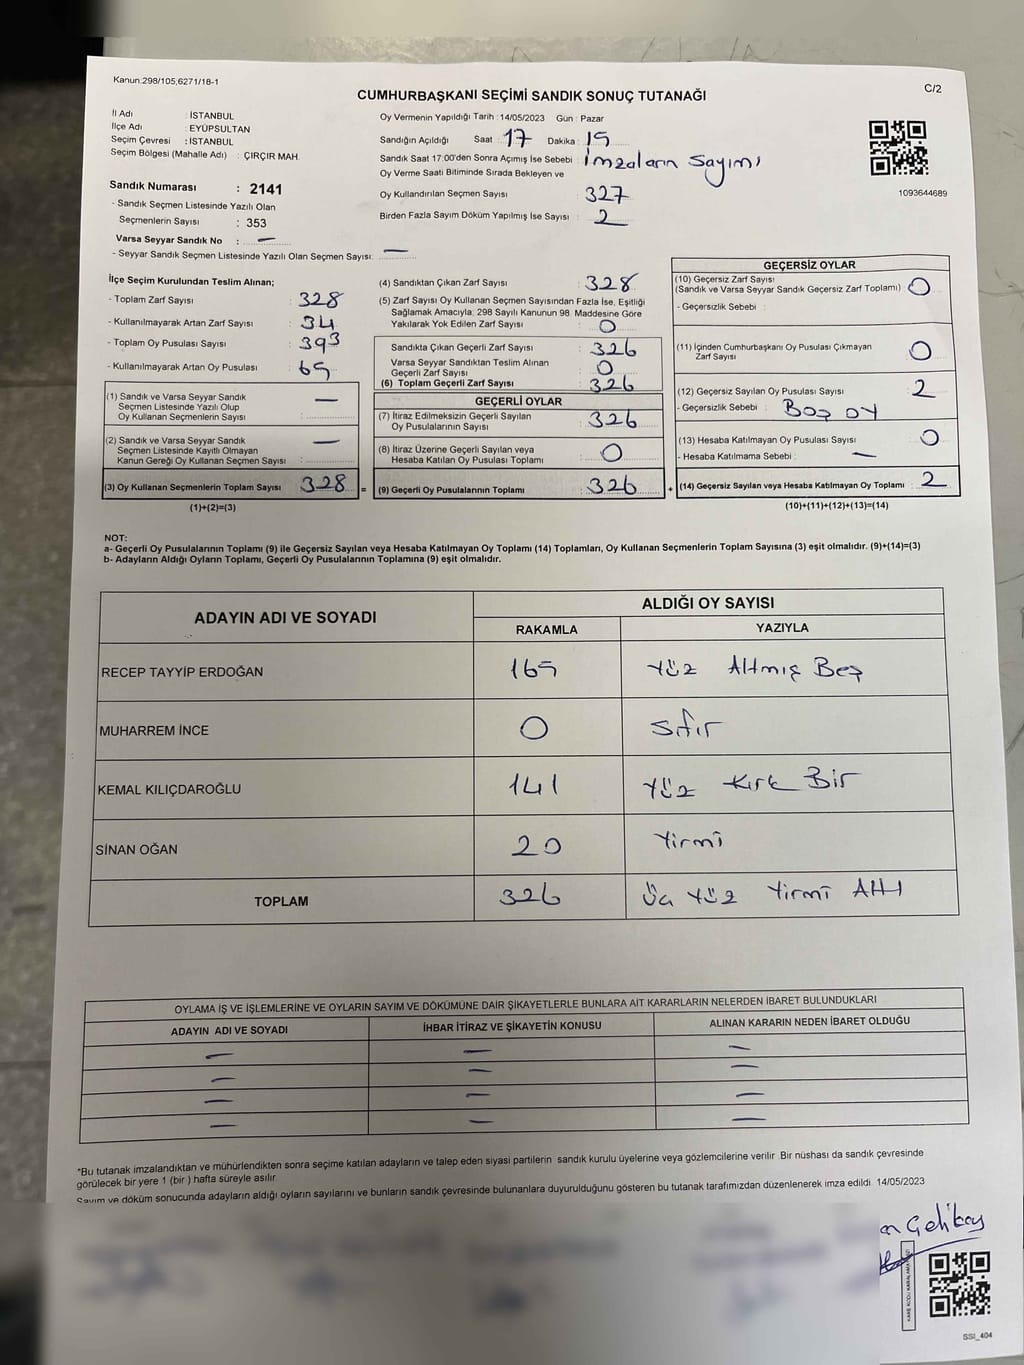 Kanun:298/105,6271/18-1
C/2
CUMHURBAŞKANI SEÇİMİ SANDIK SONUÇ TUTANAĞI
İl Adı : İSTANBUL
İlçe Adı : EYÜPSULTAN
Seçim Çevresi : İSTANBUL
Seçim Bölgesi (Mahalle Adı) : ÇIRÇIR MAH.
Sandık Numarası : 2141
- Sandık Seçmen Listesinde Yazılı Olan
Seçmenlerin Sayısı : 353
Varsa Seyyar Sandık No : —
- Seyyar Sandık Seçmen Listesinde Yazılı Olan Seçmen Sayısı: —
Oy Vermenin Yapıldığı Tarih : 14/05/2023 Gün : Pazar
Sandığın Açıldığı Saat : 17 Dakika : 15
Sandık Saat 17:00'den Sonra Açımış İse Sebebi : İmzaların Sayımı
Oy Verme Saati Bitiminde Sırada Bekleyen ve
Oy Kullandırılan Seçmen Sayısı : 327
Birden Fazla Sayım Döküm Yapılmış İse Sayısı : 2
1093644689
İlçe Seçim Kurulundan Teslim Alınan;
- Toplam Zarf Sayısı : 328
- Kullanılmayarak Artan Zarf Sayısı : 34
- Toplam Oy Pusulası Sayısı : 393
- Kullanılmayarak Artan Oy Pusulası : 65
(1) Sandık ve Varsa Seyyar Sandık
Seçmen Listesinde Yazılı Olup
Oy Kullanan Seçmenlerin Sayısı : —
(2) Sandık ve Varsa Seyyar Sandık
Seçmen Listesinde Kayıtlı Olmayan
Kanun Gereği Oy Kullanan Seçmen Sayısı : —
(3) Oy Kullanan Seçmenlerin Toplam Sayısı 328 =
(1)+(2)=(3)
(4) Sandıktan Çıkan Zarf Sayısı : 328
(5) Zarf Sayısı Oy Kullanan Seçmen Sayısından Fazla İse, Eşitliği
Sağlamak Amacıyla; 298 Sayılı Kanunun 98. Maddesine Göre
Yakılarak Yok Edilen Zarf Sayısı : 0
Sandıkta Çıkan Geçerli Zarf Sayısı : 326
Varsa Seyyar Sandıktan Teslim Alınan
Geçerli Zarf Sayısı : 0
(6) Toplam Geçerli Zarf Sayısı : 326
GEÇERLİ OYLAR
(7) İtiraz Edilmeksizin Geçerli Sayılan
Oy Pusulalarının Sayısı : 326
(8) İtiraz Üzerine Geçerli Sayılan veya
Hesaba Katılan Oy Pusulası Toplamı : 0
(9) Geçerli Oy Pusulalarının Toplamı : 326 +
GEÇERSİZ OYLAR
(10) Geçersiz Zarf Sayısı
(Sandık ve Varsa Seyyar Sandık Geçersiz Zarf Toplamı) : 0
- Geçersizlik Sebebi :
(11) İçinden Cumhurbaşkanı Oy Pusulası Çıkmayan
Zarf Sayısı : 0
(12) Geçersiz Sayılan Oy Pusulası Sayısı : 2
- Geçersizlik Sebebi : Boş oy
(13) Hesaba Katılmayan Oy Pusulası Sayısı : 0
- Hesaba Katılmama Sebebi : —
(14) Geçersiz Sayılan veya Hesaba Katılmayan Oy Toplamı : 2
(10)+(11)+(12)+(13)=(14)
NOT:
a- Geçerli Oy Pusulalarının Toplamı (9) ile Geçersiz Sayılan veya Hesaba Katılmayan Oy Toplamı (14) Toplamları, Oy Kullanan Seçmenlerin Toplam Sayısına (3) eşit olmalıdır. (9)+(14)=(3)
b- Adayların Aldığı Oyların Toplamı, Geçerli Oy Pusulalarının Toplamına (9) eşit olmalıdır.
ADAYIN ADI VE SOYADI
ALDIĞI OY SAYISI
RAKAMLA YAZIYLA
RECEP TAYYİP ERDOĞAN 165 Yüz Altmış Beş
MUHARREM İNCE 0 Sıfır
KEMAL KILIÇDAROĞLU 141 Yüz Kırk Bir
SİNAN OĞAN 20 Yirmi
TOPLAM 326 Üç Yüz Yirmi Altı
OYLAMA İŞ VE İŞLEMLERİNE VE OYLARIN SAYIM VE DÖKÜMÜNE DAİR ŞİKAYETLERLE BUNLARA AİT KARARLARIN NELERDEN İBARET BULUNDUKLARI
ADAYIN ADI VE SOYADI İHBAR İTİRAZ VE ŞİKAYETİN KONUSU ALINAN KARARIN NEDEN İBARET OLDUĞU
— — —
— — —
— — —
— — —
*Bu tutanak imzalandıktan ve mühürlendikten sonra seçime katılan adayların ve talep eden siyasi partilerin sandık kurulu üyelerine veya gözlemcilerine verilir. Bir nüshası da sandık çevresinde
görülecek bir yere 1 (bir ) hafta süreyle asılır.
Sayım ve döküm sonucunda adayların aldığı oyların sayılarını ve bunların sandık çevresinde bulunanlara duyurulduğunu gösteren bu tutanak tarafımızdan düzenlenerek imza edildi. 14/05/2023
SSI_404